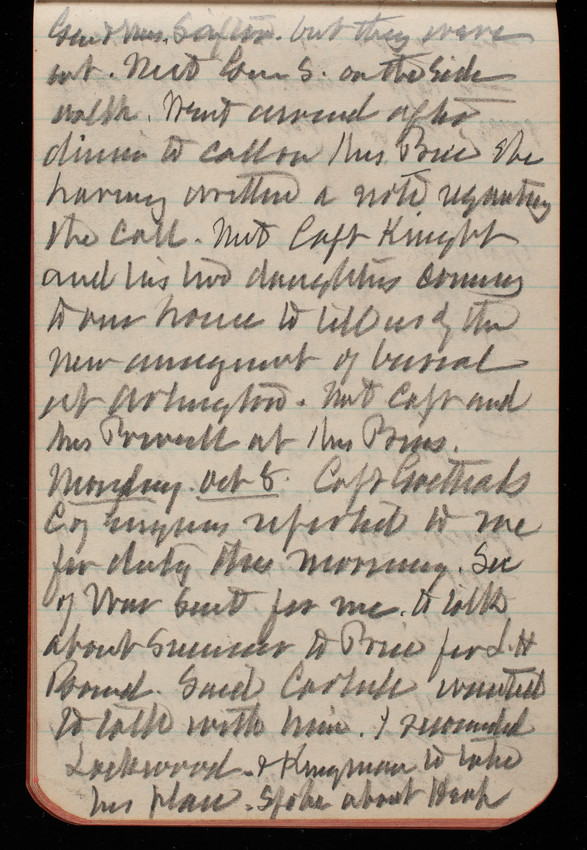 Gen & Mrs. Saxton. but they were
out. Met Gen S. on the side
walk. Went around after
dinner to call on Mrs Brice she
having written a note requesting
the call. Met Capt Knight
and his two daughters coming
to our house to tell us of the
new arrangement of burial
at Arlington. Met Capt and
Mrs Powell at Mrs Brices.
Monday. Oct 8. Capt Goethals
C of Engineers reported to me
for duty this morning. Sec
of War sent for me. to talk
about successor to Brice for L H
Board. Said Carlisle wanted
to talk with him. I recommended
Lockwood. & Kingman to take
his place. Spoke about